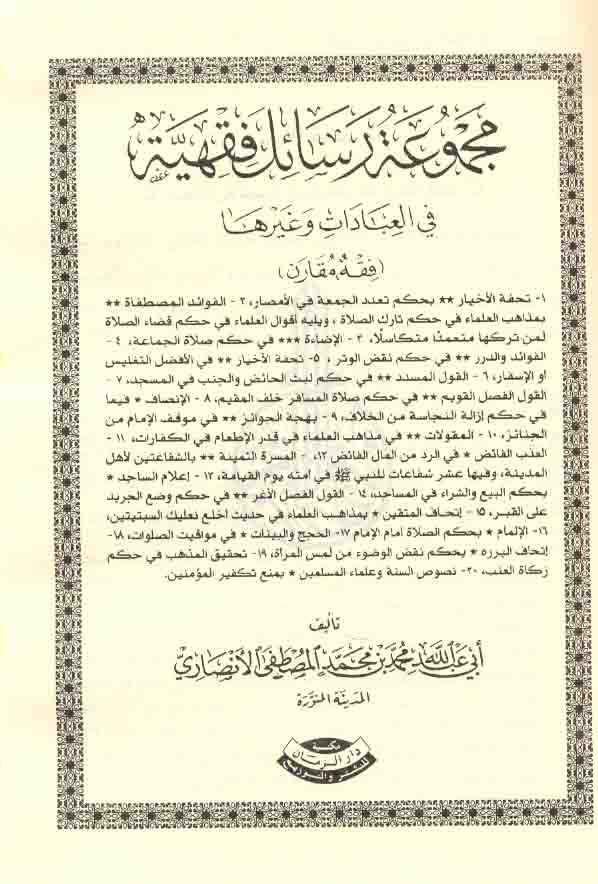 مجموعة رسائل فقهية
في العبادات وغيرها
(فقه مقارن)
١- تحفة الأخيار ** بحكم تعدد الجمعة في الأمصار، ٢- الفوائد المصطفاة **
بمذاهب العلماء في حكم تارك الصلاة، ويليه أقوال العلماء في حكم قضاء الصلاة
لمن تركها متعمدًا متكاسلًا، ٣- الإضاءة *** في حكم صلاة الجماعة، ٤-
الفوائد والدرر ** في حكم نقض الوتر، ٥- تحفة الأخيار ** في الأفضل التغليس
أو الإسفار، ٦- القول المسدد ** في حكم لبث الحائض والجنب في المسجد، ٧-
القول الفصل القويم ** في حكم صلاة المسافر خلف المقيم، ٨- الإنصاف * فيما
في حكم إزالة النجاسة من الخلاف، ٩- بهجة الجوائز ** في موقف الإمام من
الجنائز، ١٠- المقولات ** في مذاهب العلماء في قدر الإطعام في الكفارات، ١١-
العذب الفائض * في الرد من المال الفائض ١٢، - المسرة الثمينة ** بالشفاعتين لأهل
المدينة، وفيها عشر شفاعات للنبي ﷺ في أمته يوم القيامة، ١٣- إعلام الساجد *
بحكم البيع والشراء في المساجد، ١٤- القول الفصل الأغر ** في حكم وضع الجريد
على القبر، ١٥- إتحاف المتقين * بمذاهب العلماء في حديث اخلع نعليك السبتيتين،
١٦- الإلمام * بحكم الصلاة امام الإمام ١٧- الحجج والبينات * في مواقيت الصلوات، ١٨-
إتحاف البرره * بحكم نقض الوضوء من لمس المرأة، ١٩- تحقيق المذهب في حكم
زكاة العنب، ٢٠- نصوص السنة وعلماء المسلمين * بمنع تكفير المؤمنين.
تأليف
أبي عبد الله محمد بن محمد المصطفى الأنصاري
المدينة المنورة
مكتبة
دار الزمان
للنشر والتوزيع